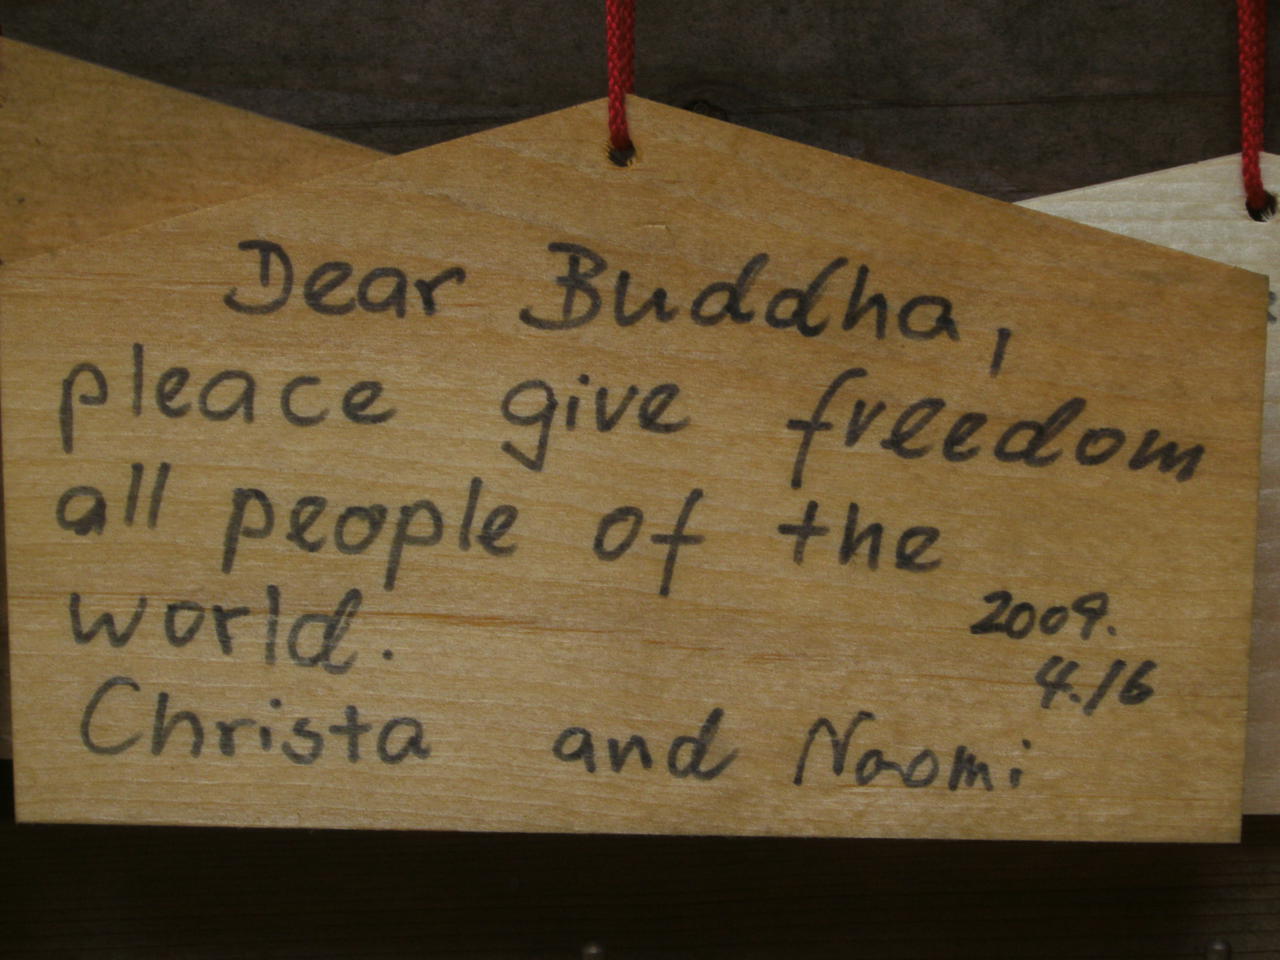 Dear Buddha,
pleace give freedom
all people of the
world.
2009.
4.16
Christa and Naomi